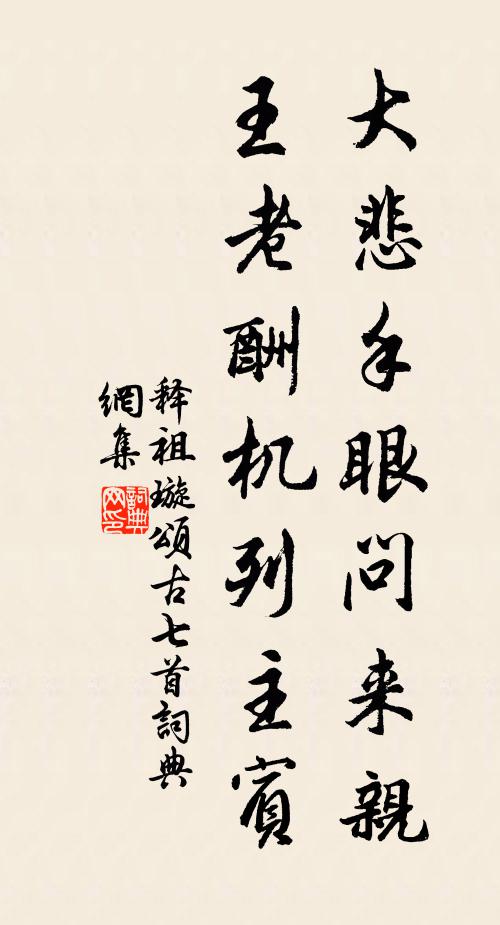 大悲手眼问来親
王老酬机列主賓
释祖璇頌古七首詞典
網集
詞典
网印